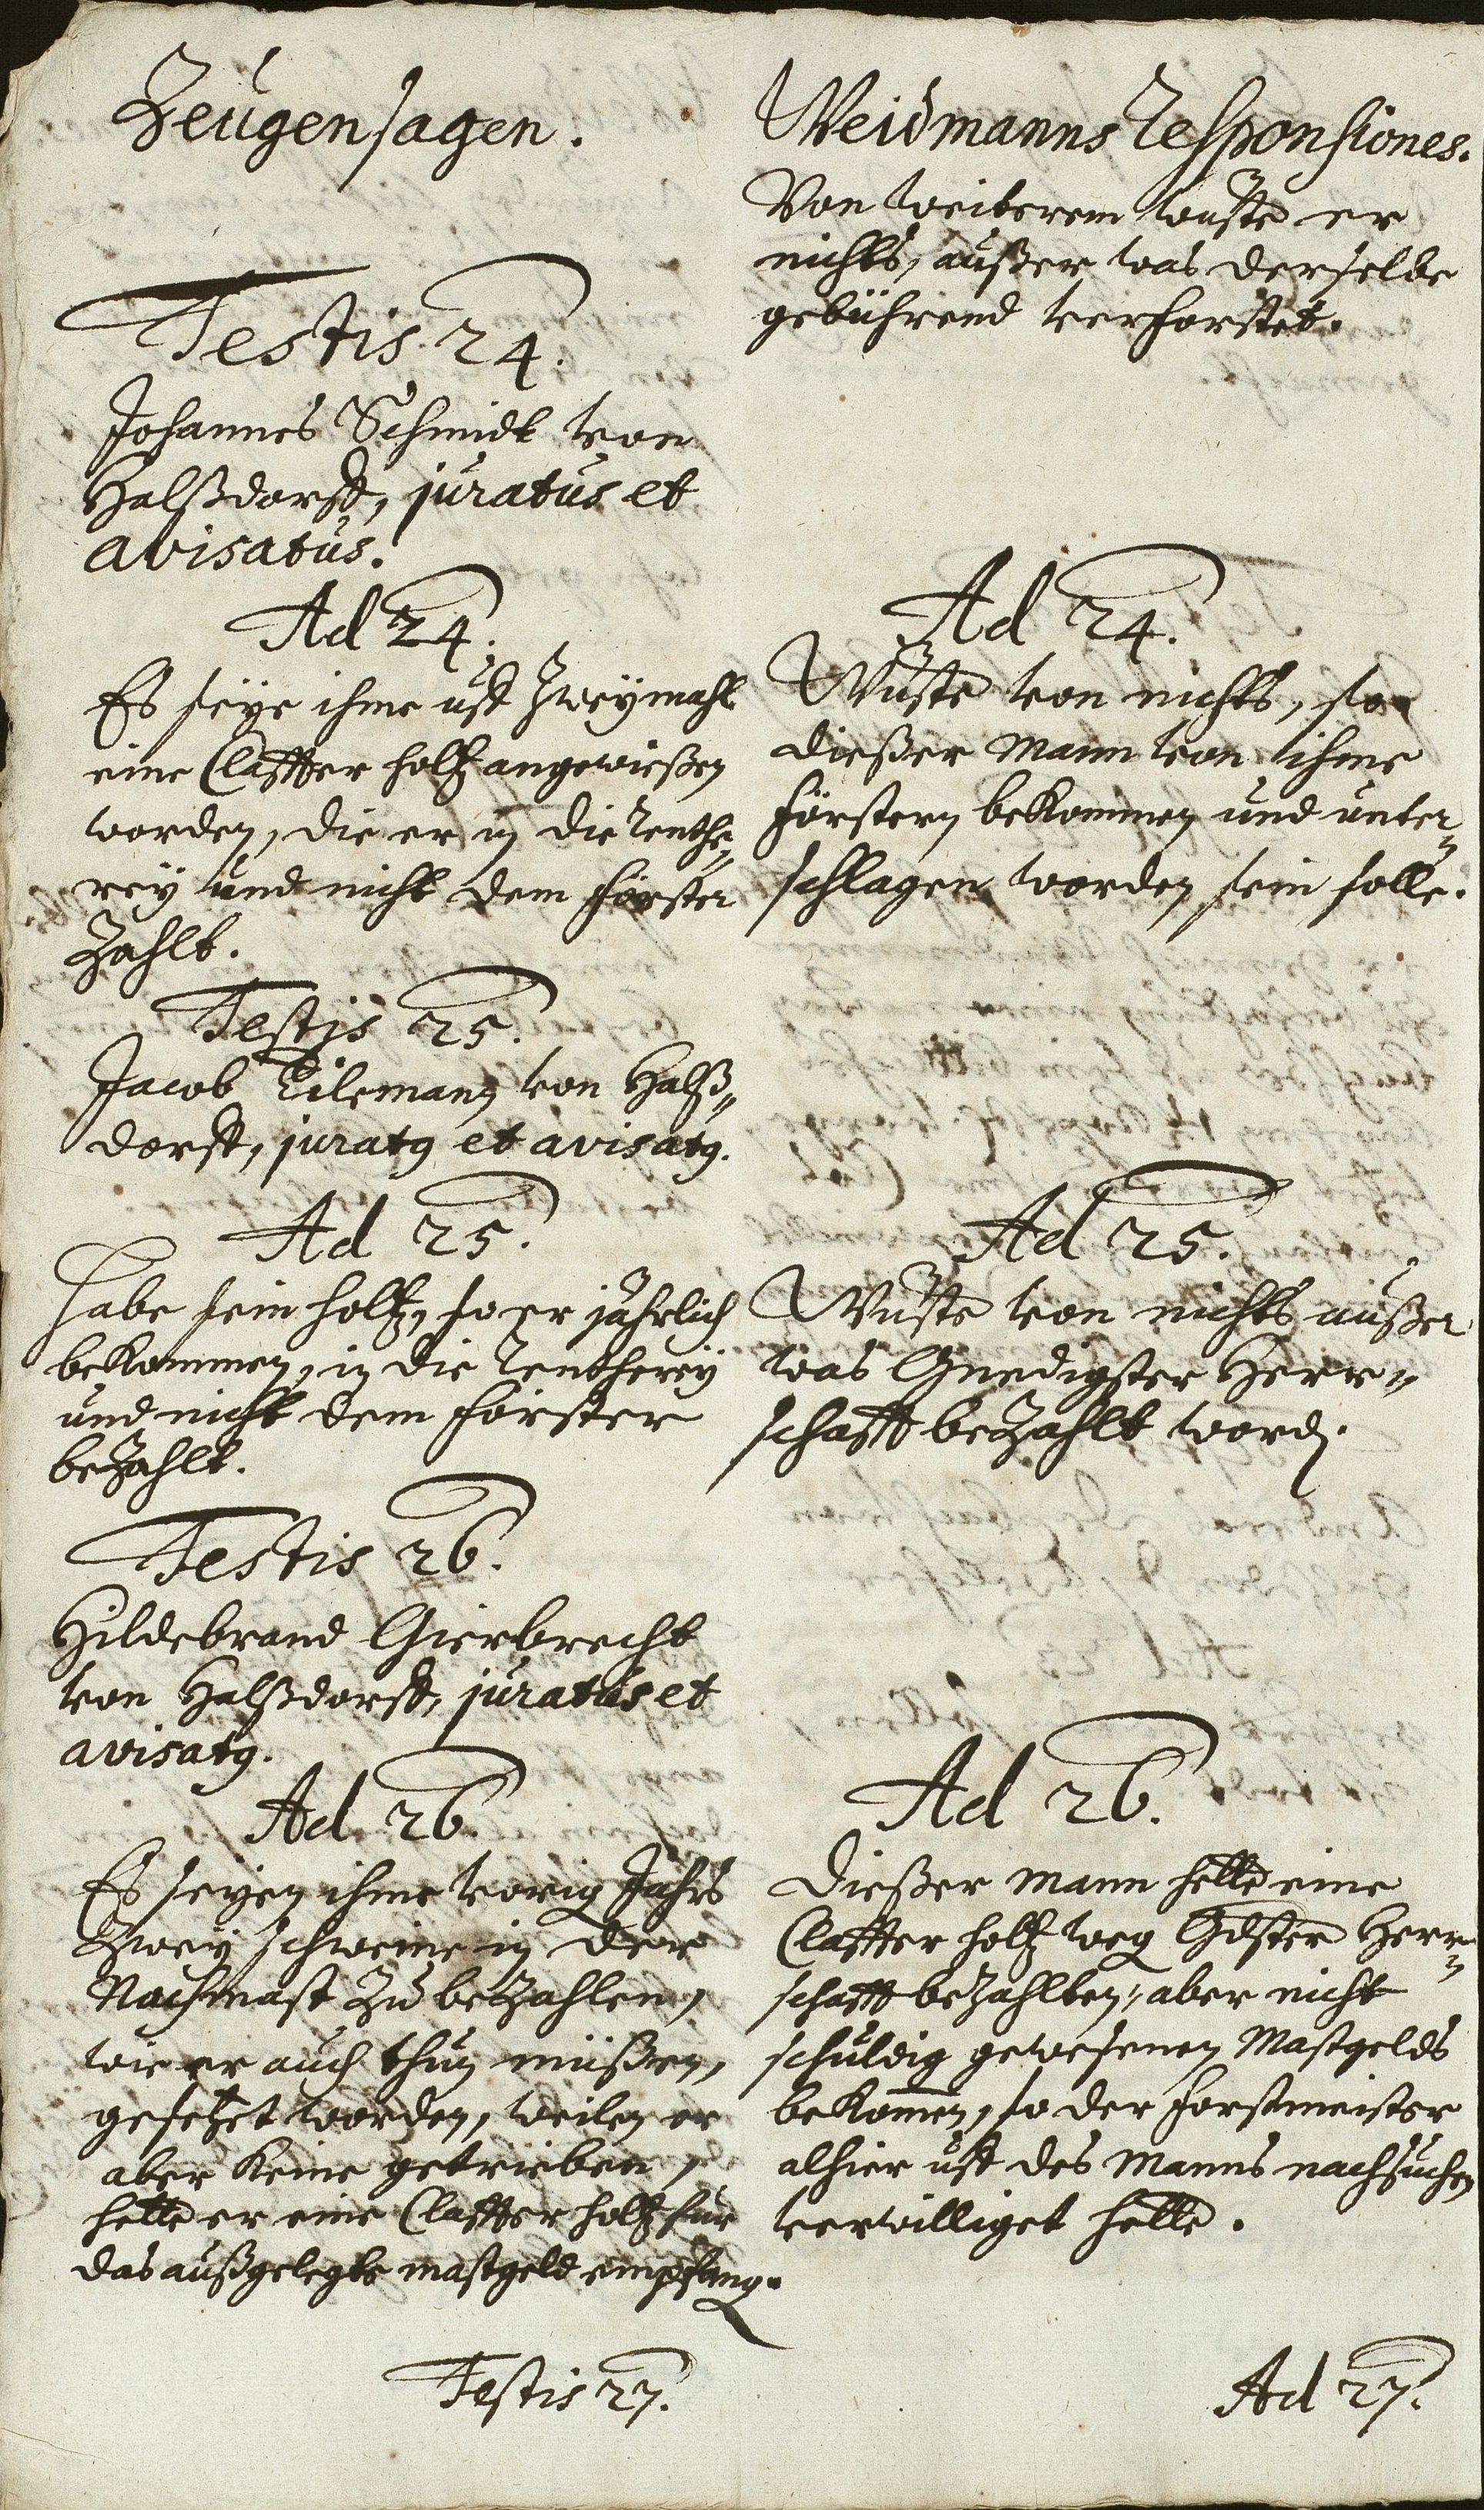 Zeugensagen.
Testis 24.
Johannes Schmidt von
Halßdorff, juratus et
avisatus.
Ad 24.
Es seye ihme uff zweymahl
eine Claffter holtz angewießen
worden, die er in die Renthe„
rey und nicht dem Förster
zahlt.
Testis 25.
Jacob Tilemann von Halß„
dorff, juratg et avisatg.
Ad 25.
Habe sein holtz, so er jährlich
bekommen, in die Rentherey
und nicht dem Förster
bezahlt.
Testis 26.
Hildebrand Gierbrecht
von Halßdorff, juratus et
avisatg.
Ad 26.
Es seyen ihme vorig Jahrs
Zwey schweine in der
Nachmast zu bezahlen,
wie er auch thun müßen,
gesetzet worden, weilen er
aber keine getrieben,
hette er eine Claffter holtz für
das außgelegte mastgeld empfang.
Testis 27.
Weidmanns Responsiones.
Von weiterem wuste er
nichts, außer was derselbe
gebührend verforstet.
Ad 24.
Wuste von nichts, so
dießer Mann von ihme
Förstern bekommen und unter„
schlagen worden sein solle.
Ad 25.
Wuste von nichts außer
was Gnedigster Herr„
schafft bezahlt word.
Ad 26.
Dießer Mann hette eine
Claffter holtz weg Gdster Herr„
schafft bezahlten, aber nicht
schuldig gewesenen Mastgelds
bekomen, so der Forstmeister
alhier uff des Manns nachsuchen
verwilliget hette.
Ad 27.